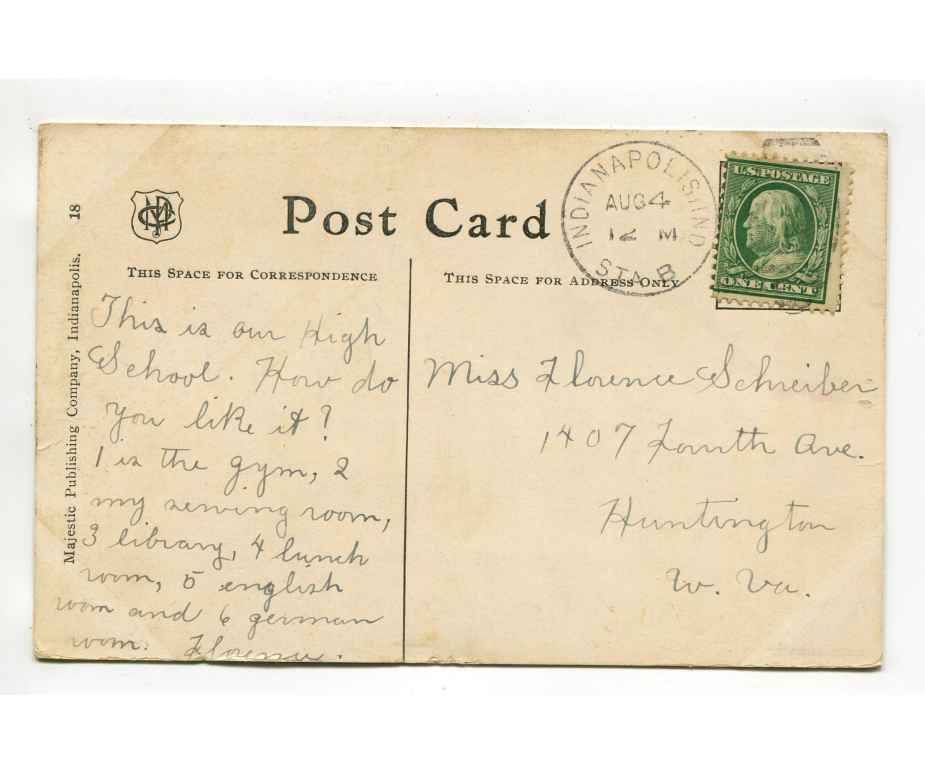 Post Card
THIS SPACE FOR CORRESPONDENCE
THIS SPACE FOR ADDRESS ONLY
Majestic Publishing Company, Indianapolis.
18
INDIANAPOLIS, IND
AUG 4
12 M
STA. B
U.S. POSTAGE
ONE CENT
This is our High
School. How do
you like it?
1 is the gym, 2
my sewing room,
3 library, 4 lunch
room, 5 english
room and 6 german
room. Florence.
Miss Florence Schreiber
1407 Fourth Ave.
Huntington
W. Va.